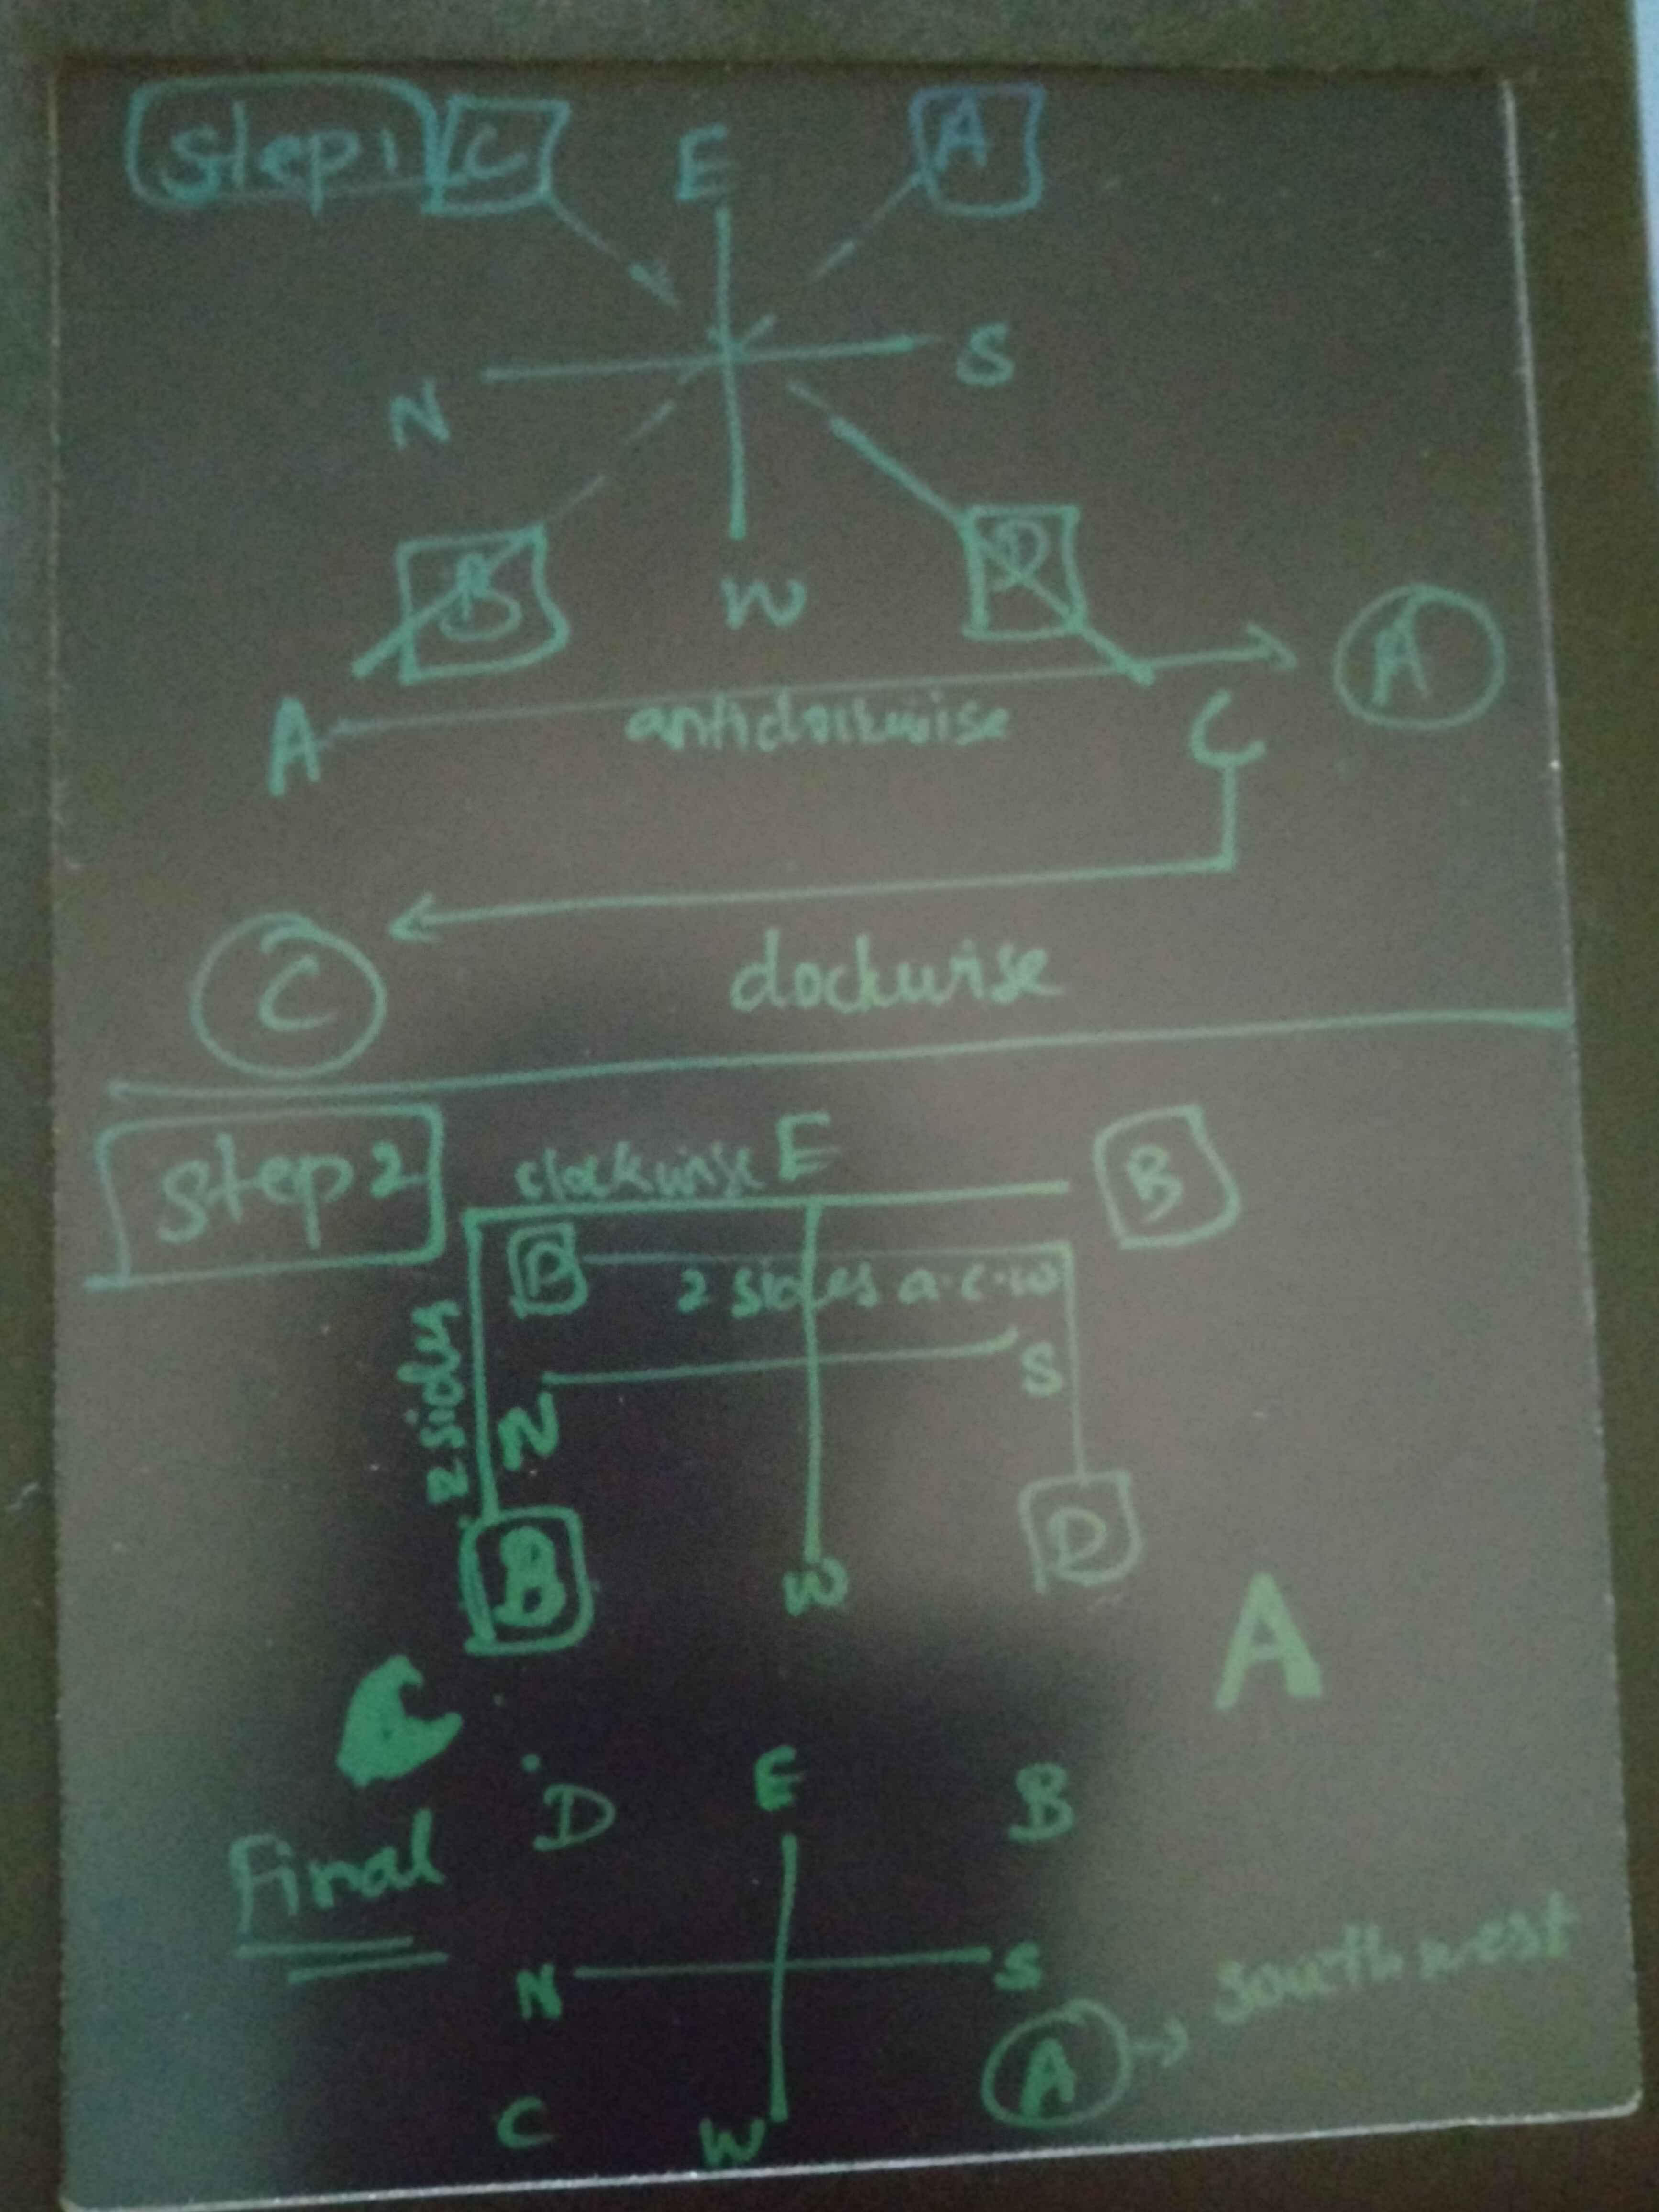 Step 1 C E A
N S
B W D
A antidockwise C A
C dockwise
Step 2 clockwise E B
2 sides a.c.w
2 sides N S
B W D
C A
D E B
Final
N S
A → south west
C W